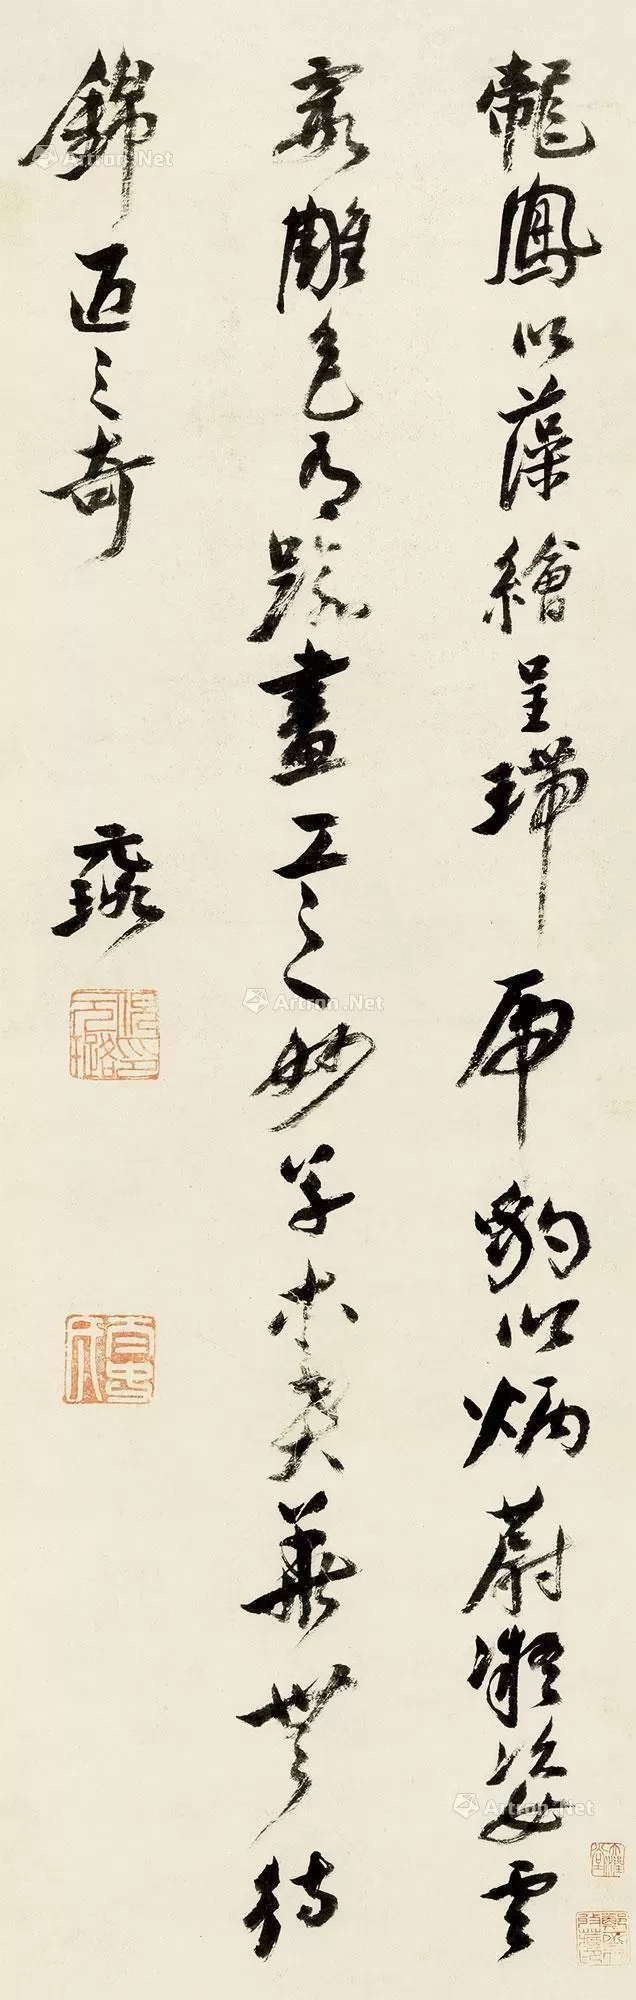 龍鳳以藻繪呈瑞虎豹以炳蔚凝姿雲
霞雕色有踰畫工之妙草木賁華無待
錦匠之奇
元璐
Artron.Net
Artron.Net
Artron.Net